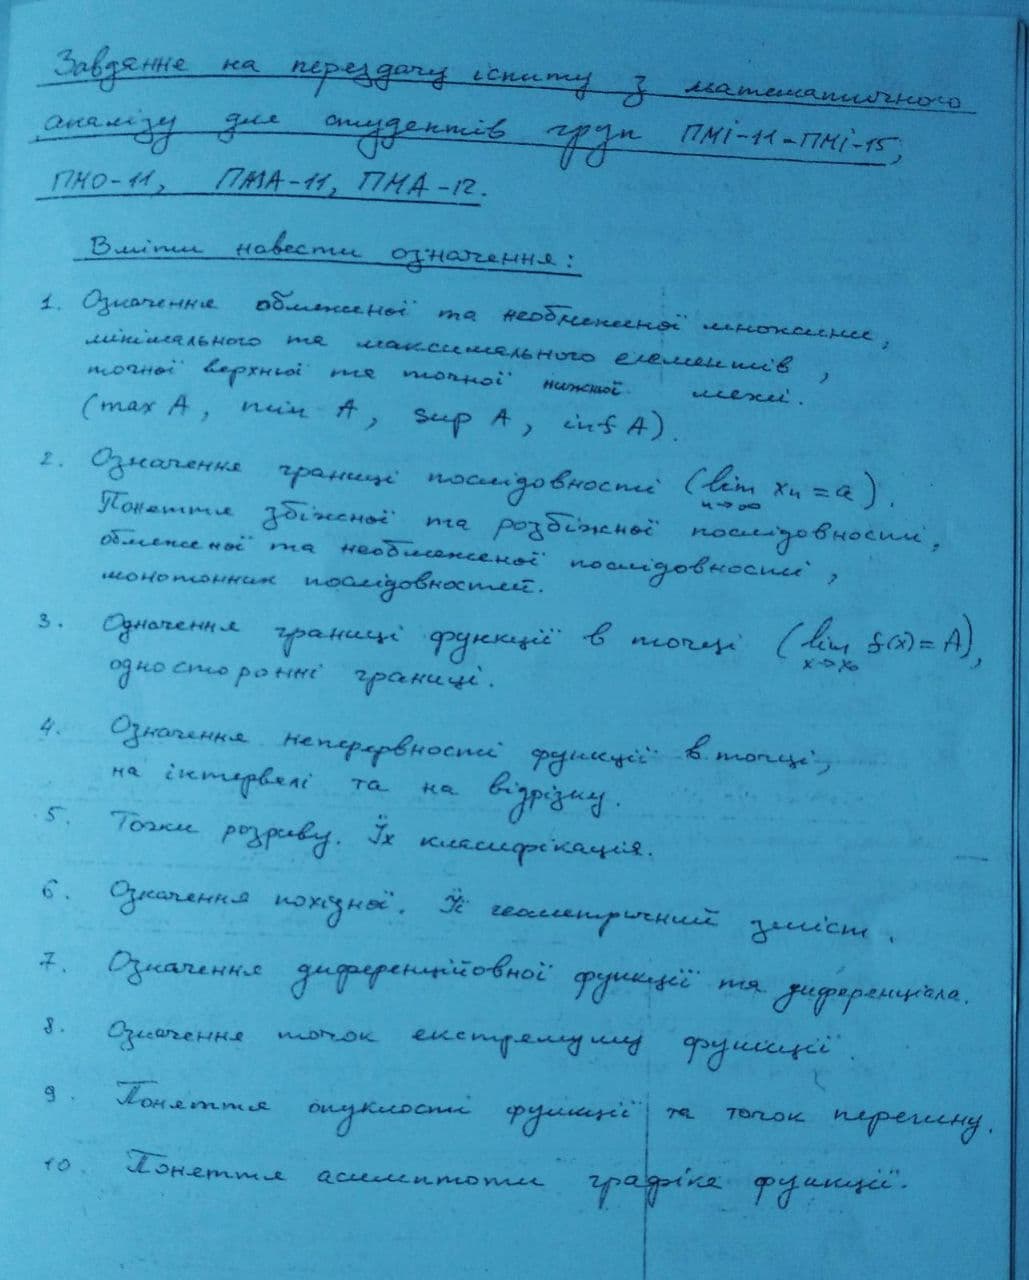 Завдання на перездачу іспиту з математичного
аналізу для студентів груп ПМІ-11-ПМІ-15,
ПМО-11, ПМА-11, ПМА-12.
Вміти навести означення:
1. Означення обмеженої та необмеженої множини,
мінімального та максимального елементів,
точної верхньої та точної нижньої межі.
(max A, min A, sup A, inf A).
2. Означення границі послідовності (lim xn = a).
n→∞
Поняття збіжної та розбіжної послідовності,
обмеженої та необмеженої послідовності,
монотонних послідовностей.
3. Означення границі функції в точці (lim f(x) = A),
x→x0
односторонні границі.
4. Означення неперервності функції в точці,
на інтервалі та на відрізку.
5. Точки розриву. Їх класифікація.
6. Означення похідної. Її геометричний зміст.
7. Означення диференційовної функції та диференціала.
8. Означення точок екстремуму функції.
9. Поняття опуклості функції та точок перегину.
10. Поняття асимптоти графіка функції.